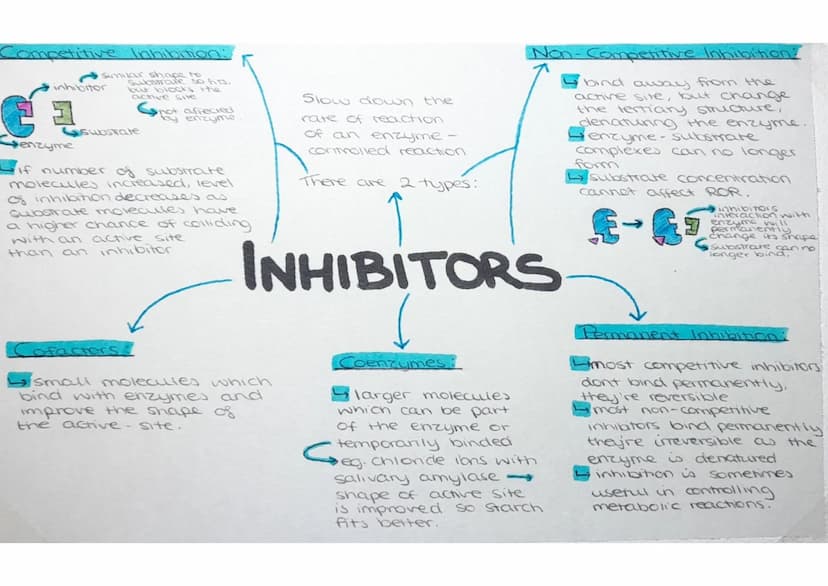 INHIBITORS
Slow down the
rate of reaction
of an enzyme-
controlled reaction
There are 2 types:
Competitive Inhibition:
inhibitor
similar shape to
substrate so fits,
but blocks the
active site
not affected
by enzyme
substrate
enzyme
if number of substrate
molecules increased, level
of inhibition decreases as
substrate molecules have
a higher chance of colliding
with an active site
than an inhibitor
Non-Competitive Inhibition:
bind away from the
active site, but change
the tertiary structure,
denaturing the enzyme.
enzyme-substrate
complexes can no longer
form
substrate concentration
cannot affect ROR.
inhibitors
interaction with
enzyme will
permanently
change its shape
substrate can no
longer bind.
Cofactors:
small molecules which
bind with enzymes and
improve the shape of
the active-site.
Coenzymes:
larger molecules
which can be part
of the enzyme or
temporarily binded
eg. chloride ions with
salivary amylase →
shape of active site
is improved so starch
fits better.
Permanent Inhibition:
most competitive inhibitors
dont bind permanently,
they're reversible
most non-competitive
inhibitors bind permanently
they're irreversible as the
enzyme is denatured
inhibition is sometimes
useful in controlling
metabolic reactions.